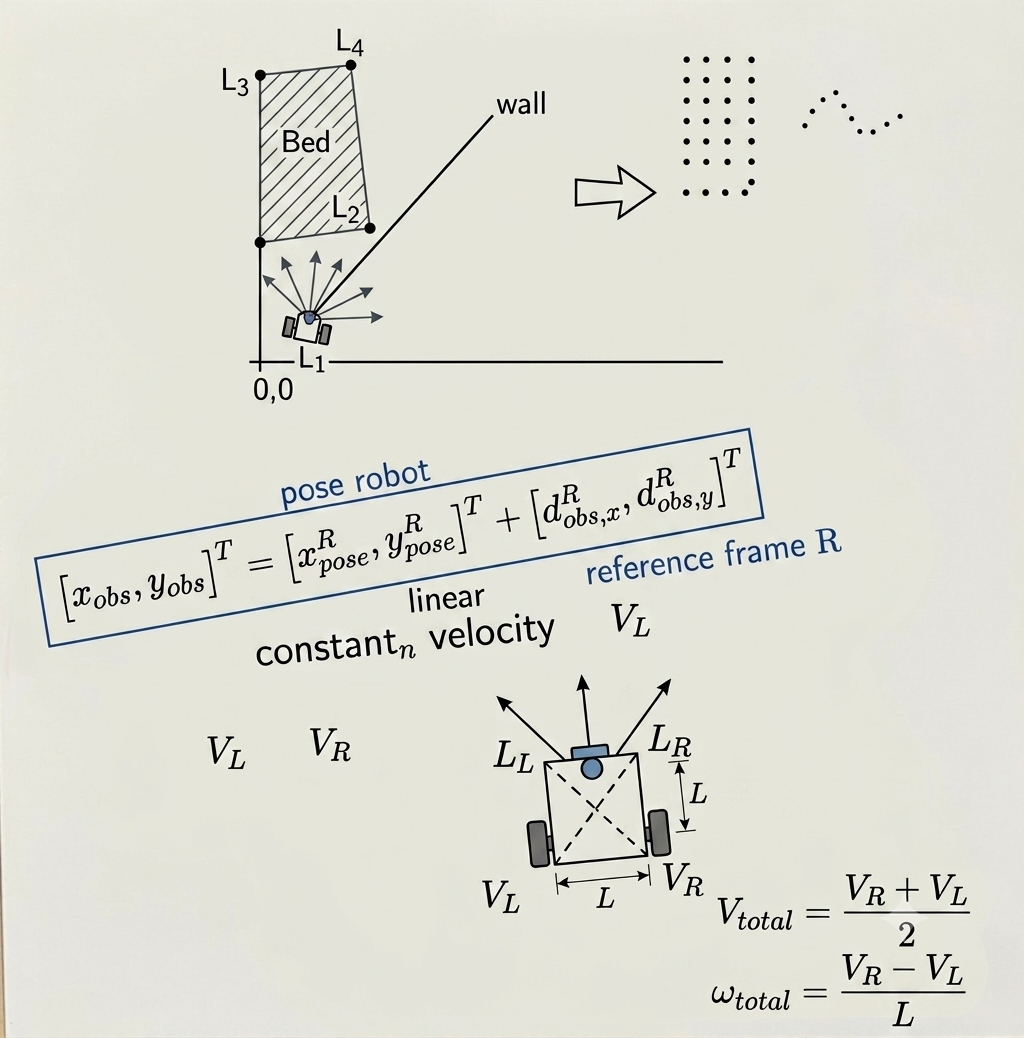 L₄
L₃
wall
Bed
L₂
L₁
0,0
pose robot
[x_obs, y_obs]^T = [x^R_pose, y^R_pose]^T + [d^R_obs,x, d^R_obs,y]^T
reference frame R
linear
constantₙ velocity
V_L
V_L V_R
L_L L_R
L
V_L L V_R
V_total = (V_R + V_L)/2
ω_total = (V_R − V_L)/L